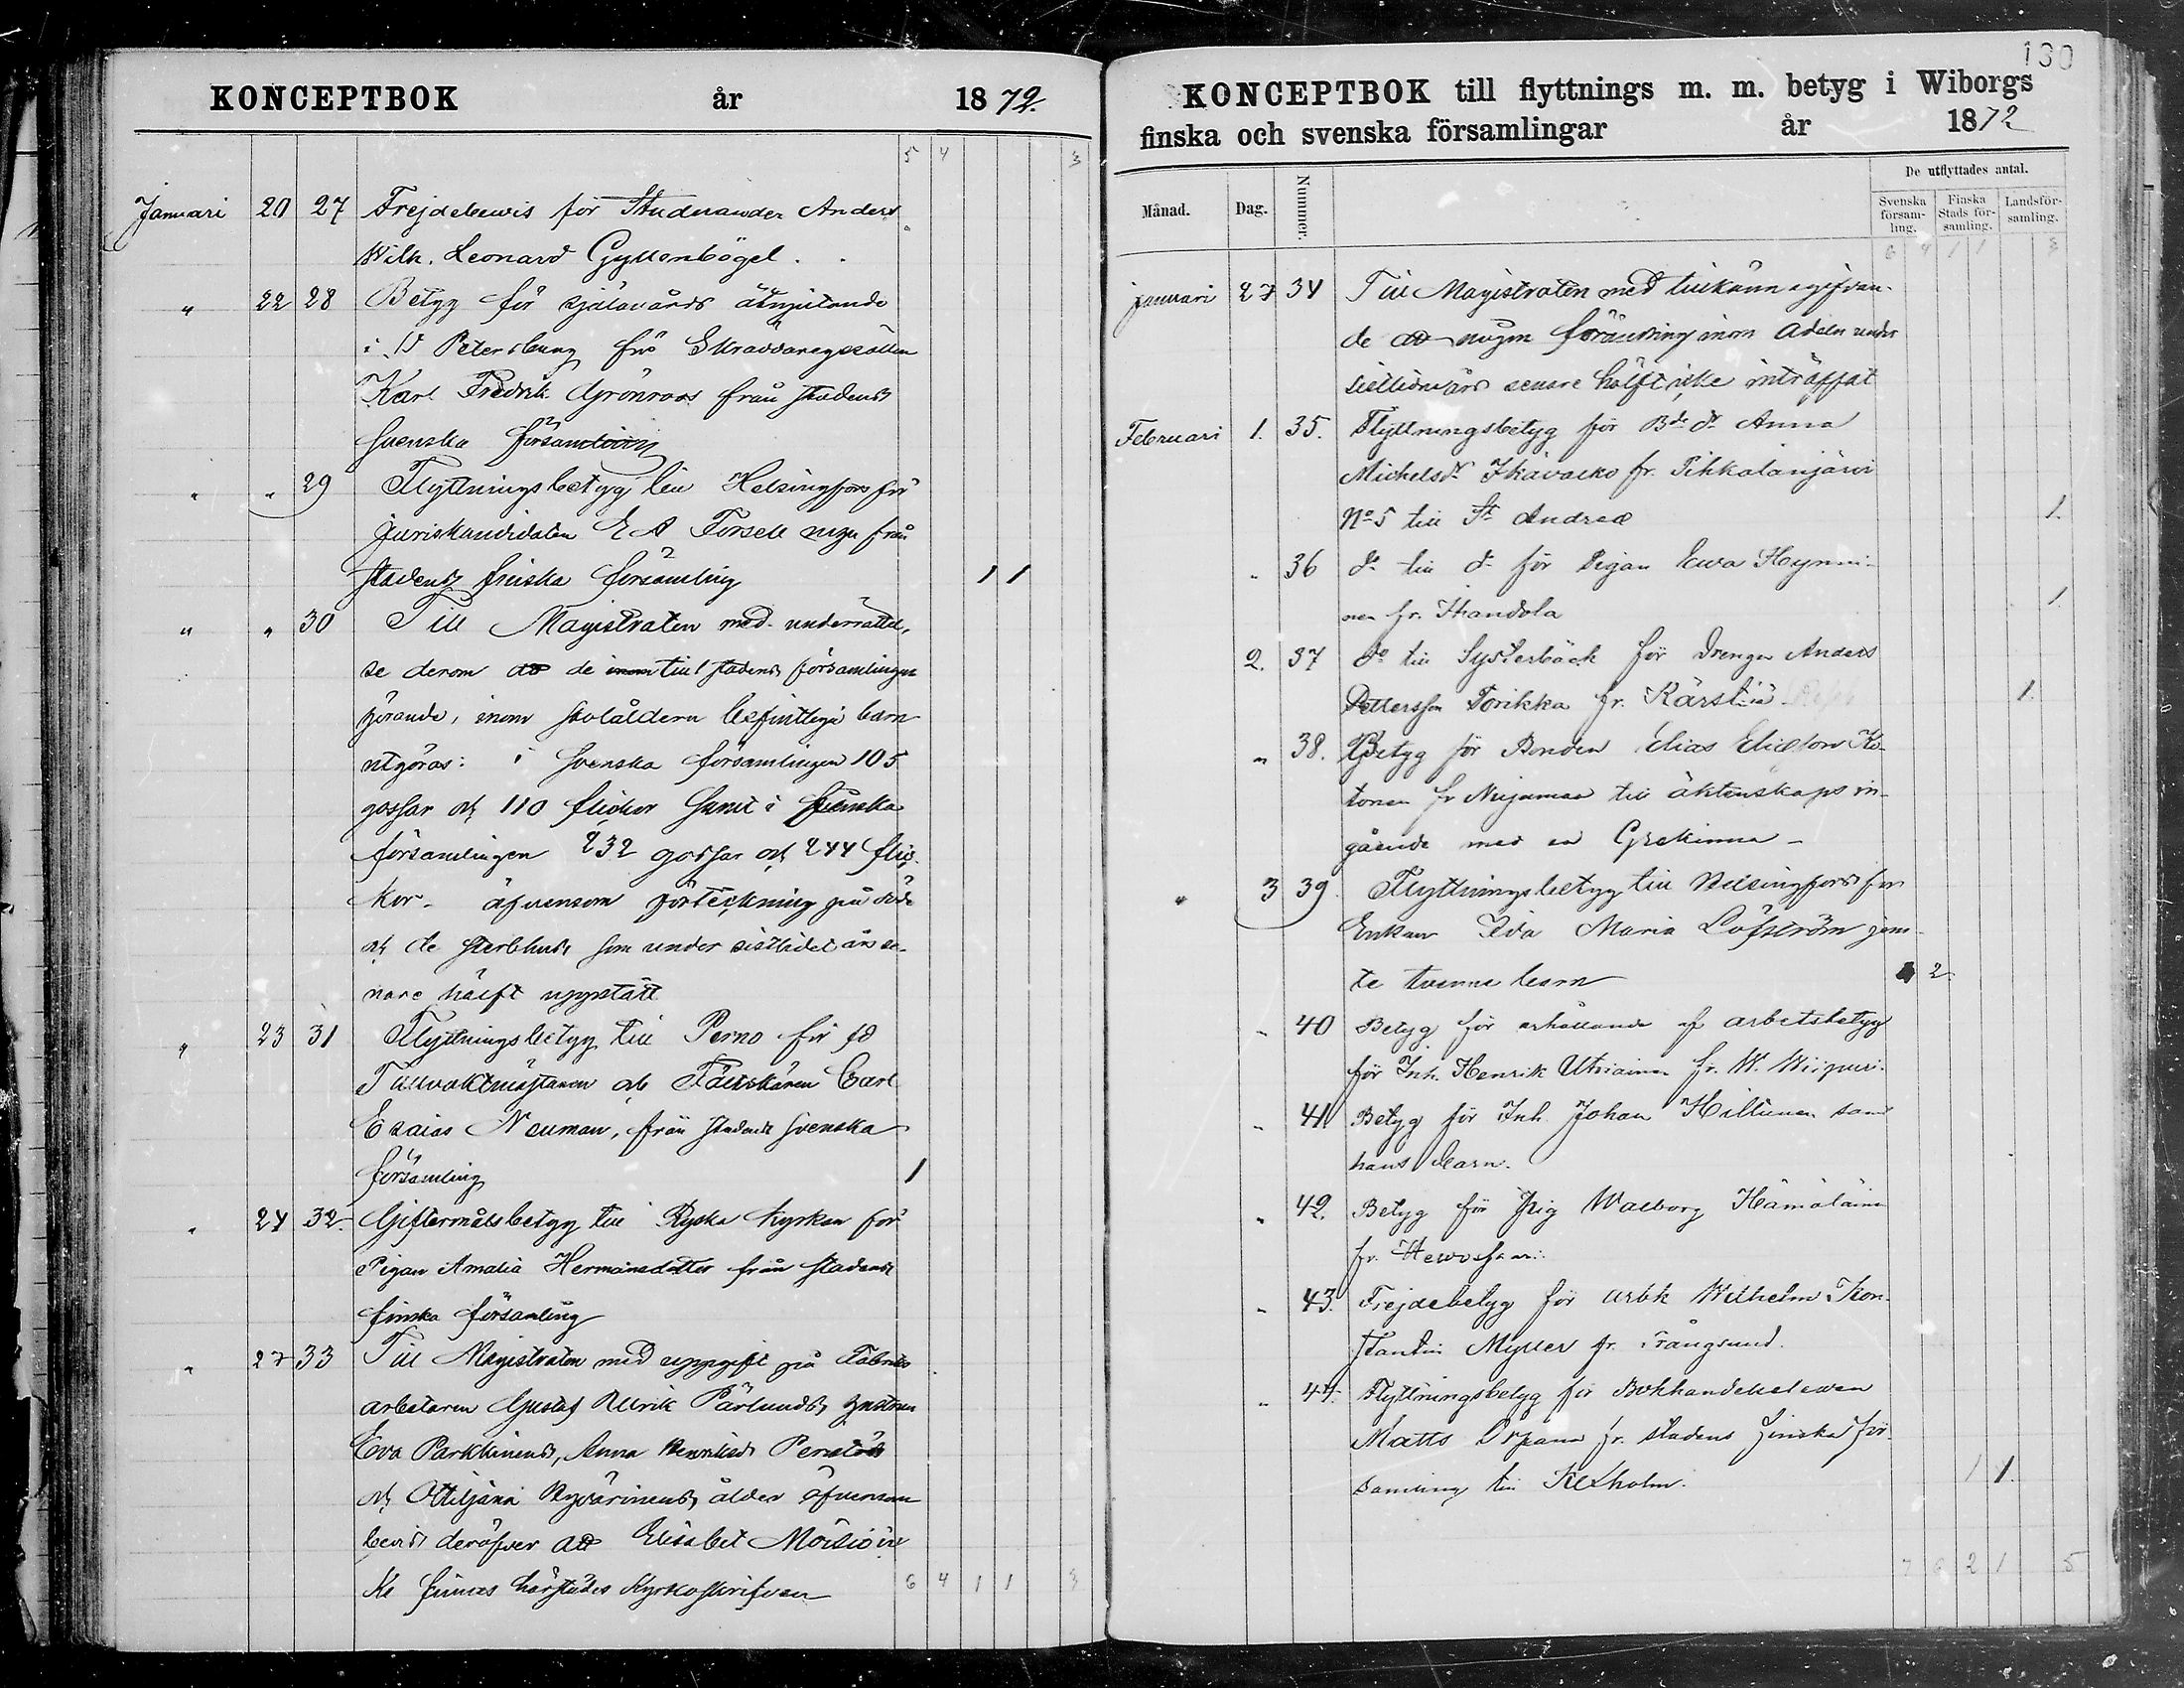 KONCEPTBOK år 1872.
5 4 3
Januari 20 27 Frejdebewis för Studeranden Anders
Wilh. Leonard Gyllenbögel.
" 22 28 Betyg för själavårds åtnjutande
i St Petersburg för Skräddaregesällen
Karl Fredrik Grönroos från stadens
Svenska församling
" " 29 Flyttningsbetyg till Helsingfors för
Juriskandidaten E A Forsell nyss från
stadens finska församling 1 1
" " 30 Till Magistraten med underrättel-
se derom att de inom till stadens församlingar
hörande, inom skolåldern befintliga barn
utgöras: i Svenska församlingen 105
gossar och 110 flickor samt i finska
församlingen 232 gossar och 244 flic-
kor äfvensom förteckning på döde
och de sterbhus, som under sistlidet års se-
nare hälft uppstått
" 23 31 Flyttningsbetyg till Perno för fd
Tullvaktmästaren och Fältskären Carl
Esaias Neuman, från stadens svenska
församling 1
" 24 32. Giftermålsbetyg till Ryska kyrkan för
Pigan Amalia Hermansdotter från stadens
finska församling
" 27 33 Till Magistraten med uppgift på Fabriks
arbetaren Gustaf Ullrik Pärlunds, hustrun
Eva Parkkinens, Anna
och Ottiljana ålder äfvensom
bevis deröfver att Elisabet
ke finnes härstädes kyrkoskrifven 6 4 1 1 3
130
KONCEPTBOK till flyttnings m. m. betyg i Wiborgs
finska och svenska församlingar år 1872
Månad. Dag. Nummer. De utflyttades antal.
Svenska församling. Finska Stads församling. Landsförsamling.
6 4 1 1 3
Januari 27 34 Till Magistraten med tillkännagifvan-
de att någon förändring inom Adeln under
sistlidne års senare hälft icke inträffat
Februari 1. 35. Flyttningsbetyg för Bde dr Anna
Michelsdr Ikävalko fr. Pihkalanjärvi
No 5 till St Andreæ 1.
" 36 do till do för Pigan Ewa Hynni-
nen fr. Ihandola 1.
2. 37 do till Systerbäck för Drengen Anders
Pettersson Torikka fr. Kärstilä 1.
" 38. Betyg för Bonden Elias Eliasson Ko-
tonen fr Nuijamaa till äktenskaps in-
gående med en Grekinna -
" 3 39. Flyttningsbetyg till Helsingfors för
Enkan Ida Maria Löfström jem-
te tvenne barn 2.
" 40 Betyg för erhållande af arbetsbetyg
för Inh. Henrik Utriainen fr. W. Wiipuri.
" 41. Betyg för Inh. Johan Hiltunen samt
hans barn.
" 42. Betyg för Pig Walborg Hämäläinen
fr.
" 43. Frejdebetyg för arbk Wilhelm Kon-
stantin Myller fr. Trångsund.
" 44. Flyttningsbetyg för Bokhandelseleven
Matts Orpana fr. stadens finska för-
samling till Kexholm. 1 1.
7 6 2 1 5